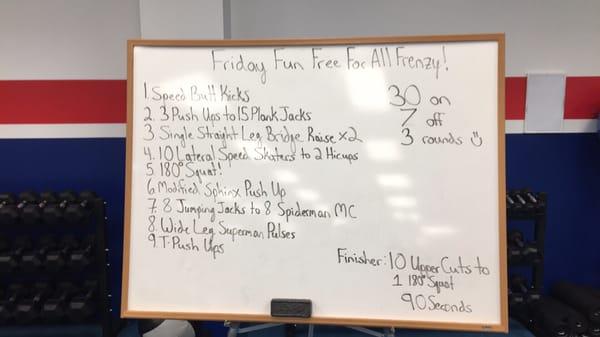 Friday Fun Free For All Frenzy!
1. Speed Butt Kicks
2. 3 Push Ups to 15 Plank Jacks
3 Single Straight Leg Bridge Raise x2
4. 10 Lateral Speed Skaters to 2 Hicups
5. 180° Squat!
6. Modified Sphinx Push Up
7. 8 Jumping Jacks to 8 Spiderman MC
8. Wide Leg Superman Pulses
9. T-Push Ups
30 on
7 off
3 rounds
Finisher: 10 Upper Cuts to
1 180° Squat
90 Seconds